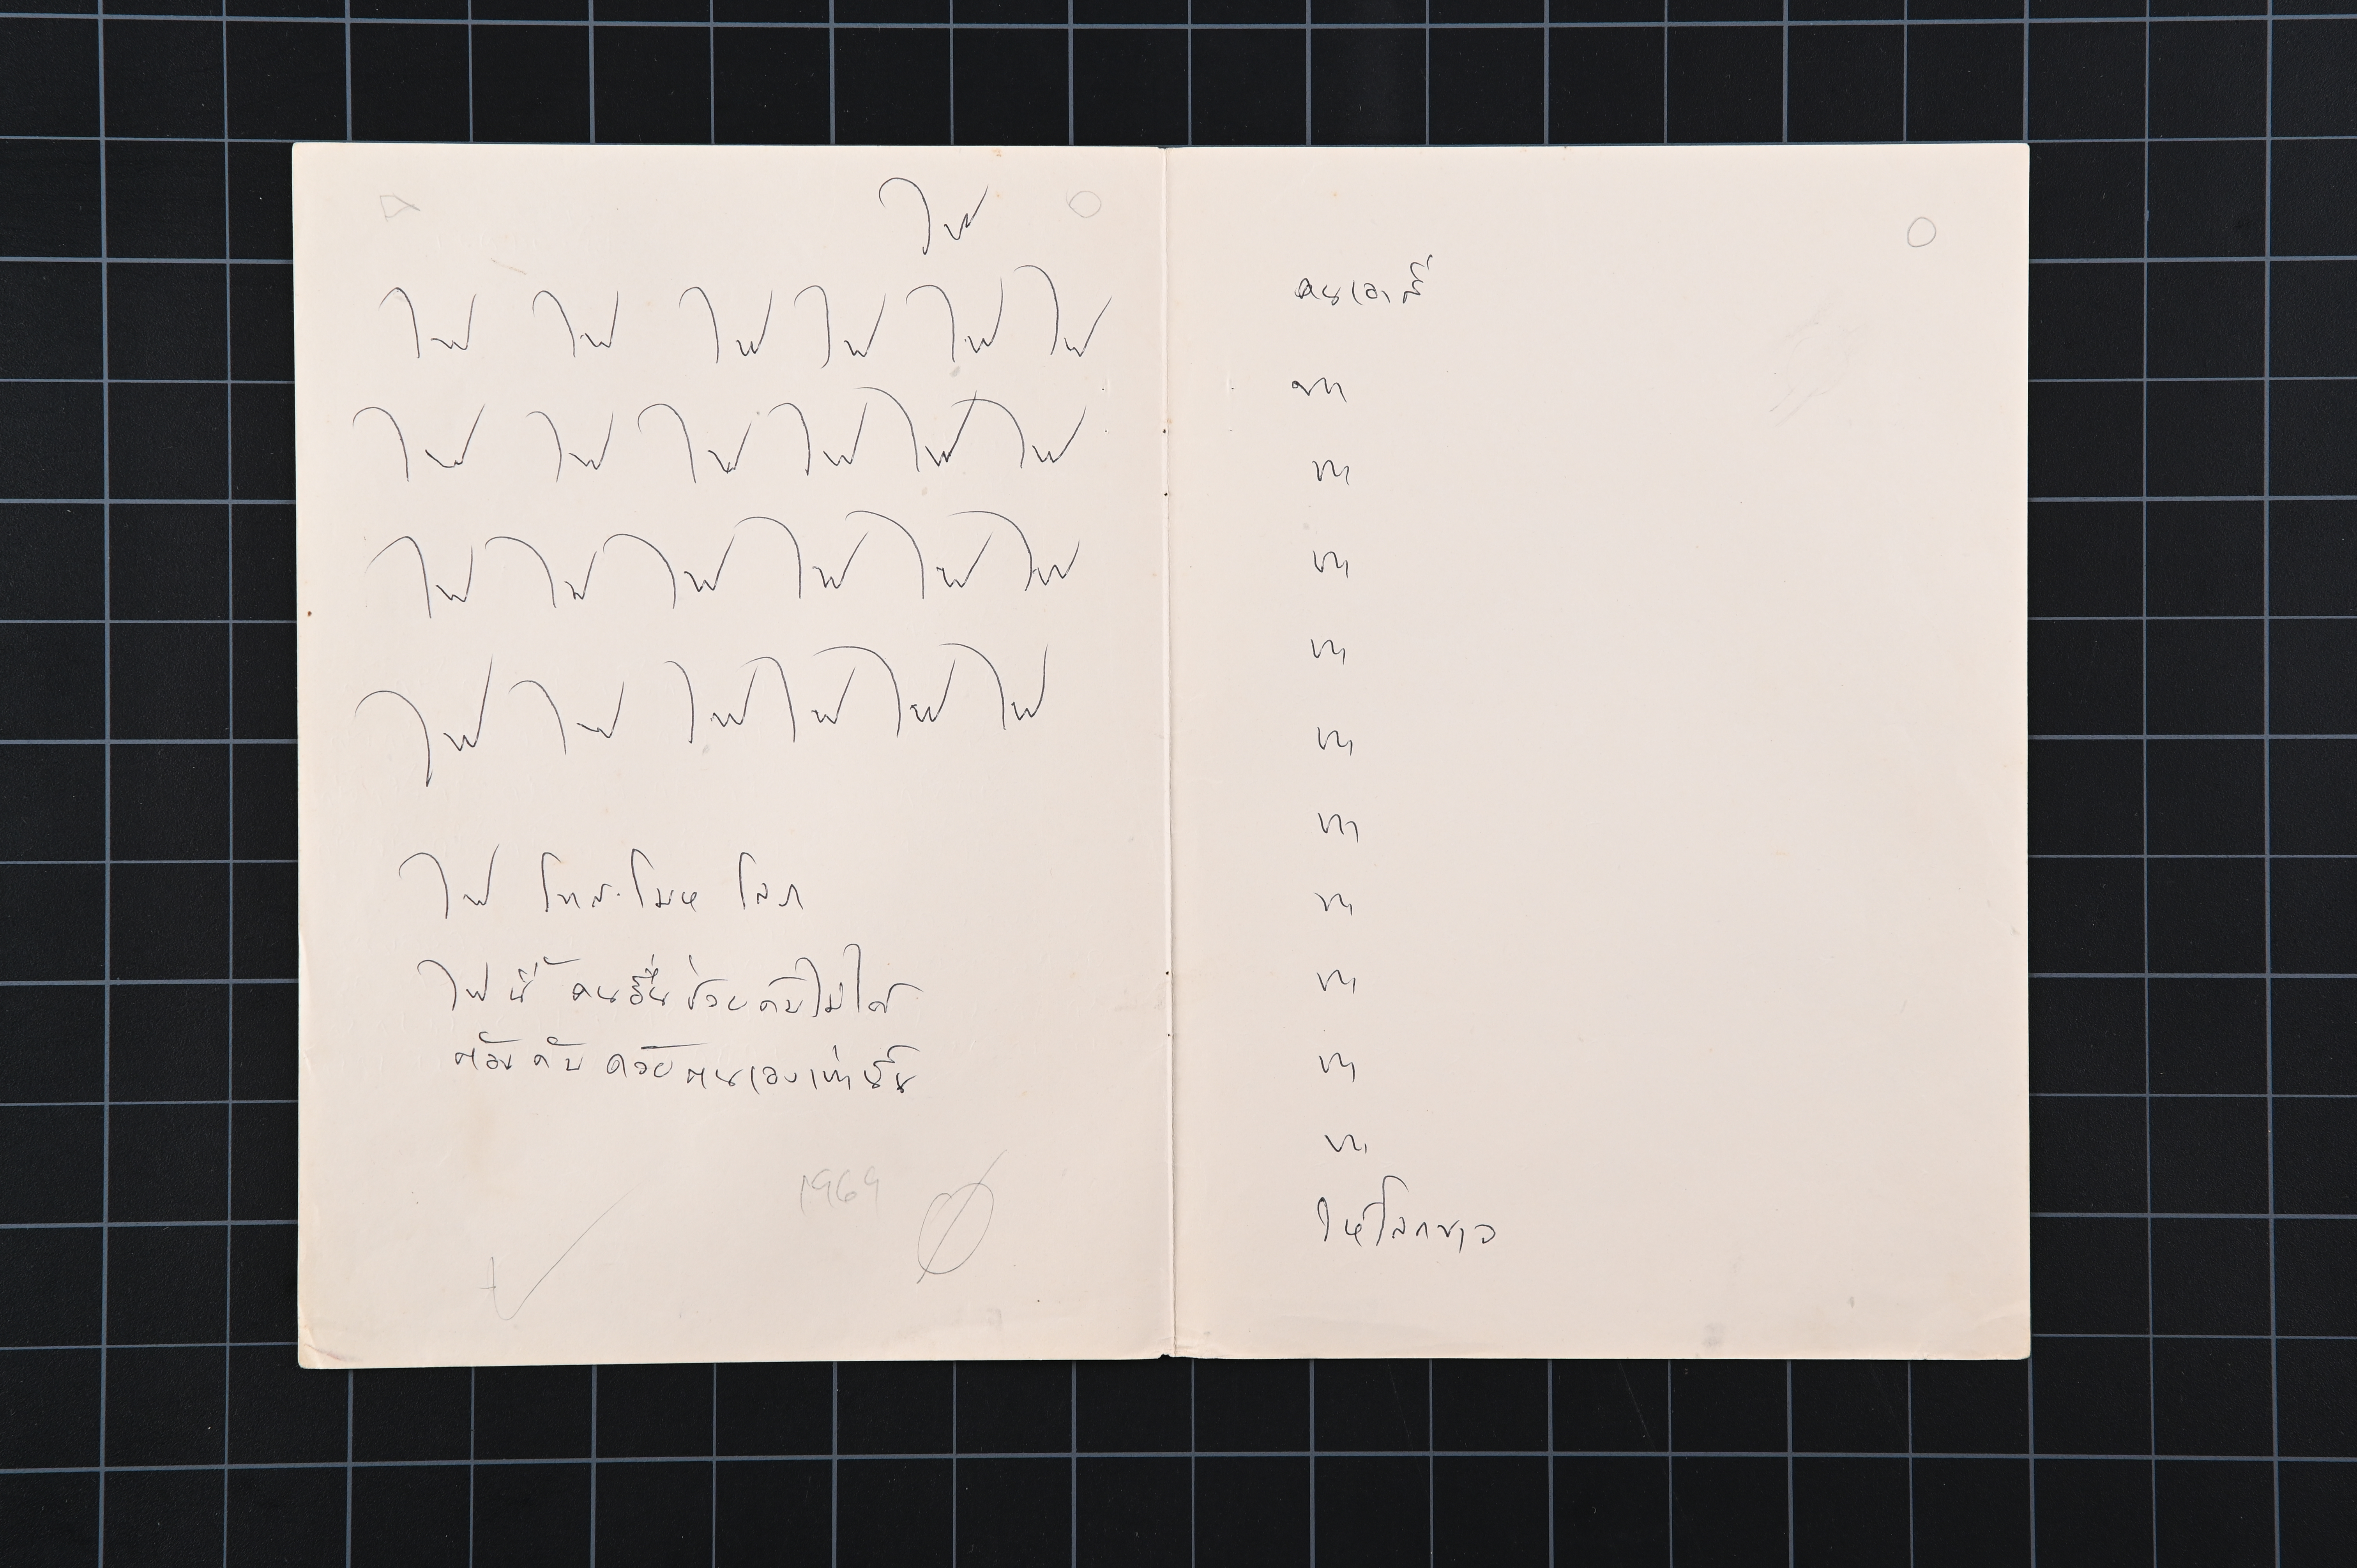 ไฟ
ไฟ ไฟ ไฟ ไฟ ไฟ ไฟ
ไฟ ไฟ ไฟ ไฟ ไฟ ไฟ
ไฟ ไฟ ไฟ ไฟ ไฟ ไฟ
ไฟ ไฟ ไฟ ไฟ ไฟ ไฟ
ไฟ โทสะ โมห โลภ
ไฟนี้ คนอื่นช่วยดับไม่ได้
ต้องดับด้วยตนเองเท่านั้น
1969
คนเอาสี
ทา
ทา
ทา
ทา
ทา
ทา
ทา
ทา
ทา
ทา
ให้โลกขาว